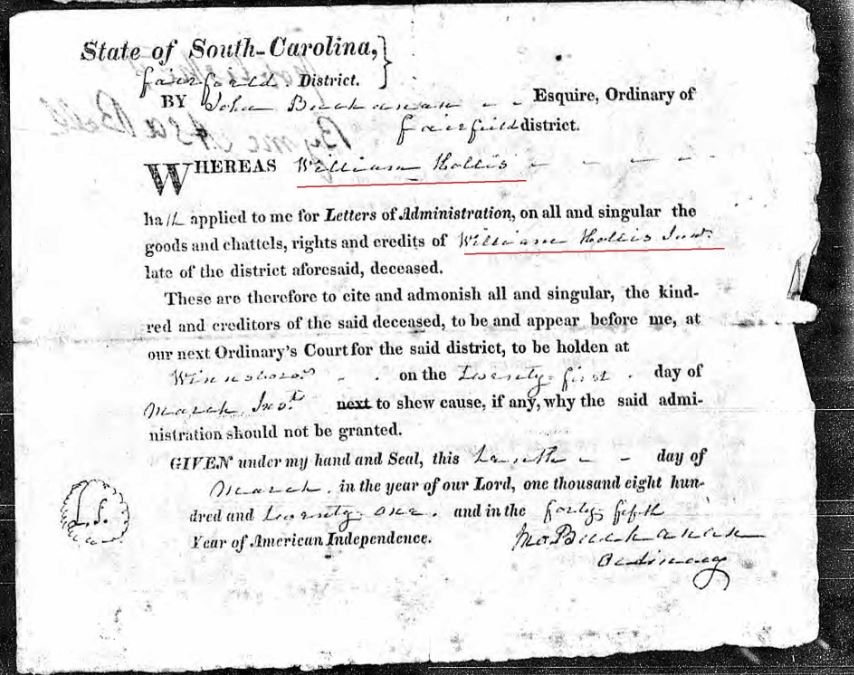 State of South-Carolina,
Fairfield District.
BY John Buchanan Esquire, Ordinary of
Fairfield district.
WHEREAS William Hollis
hath applied to me for Letters of Administration, on all and singular the
goods and chattels, rights and credits of William Hollis Junr.
late of the district aforesaid, deceased.
These are therefore to cite and admonish all and singular, the kind-
red and creditors of the said deceased, to be and appear before me, at
our next Ordinary's Court for the said district, to be holden at
Winnsboro on the twenty first day of
March Inst. next to shew cause, if any, why the said admi-
nistration should not be granted.
GIVEN under my hand and Seal, this tenth day of
March in the year of our Lord, one thousand eight hun-
dred and twenty one. and in the forty fifth
L.S.
Year of American Independence.
Jno Buchanan
Ordinary
By me Asa Bell